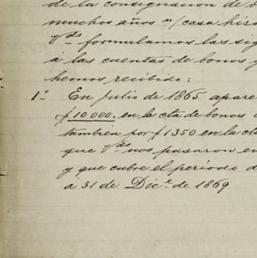 de la consignacion de b
muchos años n/ casa hiz
Vdes formulamos las sig
á las cuentas de bonos y
hemos recibido:
1º En Julio de 1865 apare
£10000. en la cta de bonos
tambien por £1350 en la ct
que Vdes nos pasaron en
y que cubre el periodo d
a 31 de Dice de 1869